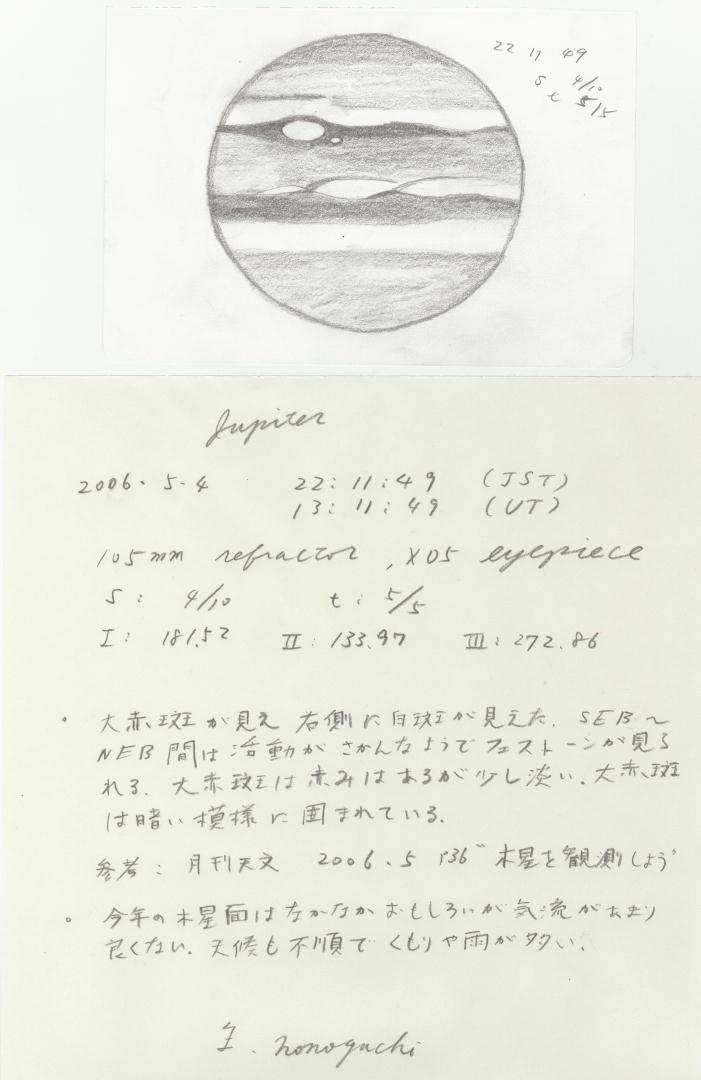 22 11 49
S 4/10
t 5/5
Jupiter
2006.5.4 22:11:49 (JST)
13:11:49 (UT)
105mm refractor, XO5 eyepiece
S: 4/10 t: 5/5
I: 181.52 II: 133.97 III: 272.86
・ 大赤斑が見え 右側に白斑が見えた. SEB〜
NEB間は活動がさかんなようでフェストーンが見ら
れる. 大赤斑は赤みはあるが少し淡い. 大赤斑
は暗い模様に囲まれている.
参考: 月刊天文 2006.5 P36〃 木星を観測しよう
・ 今年の木星面はなかなかおもしろいが気流があまり
良くない. 天候も不順でくもりや雨が多い.
nonoguchi